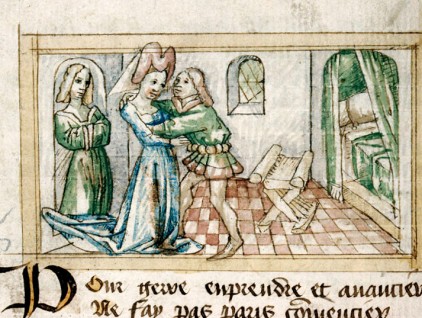 Pour gerre enprendre et auancier
Ne fay pas paris cōmencier